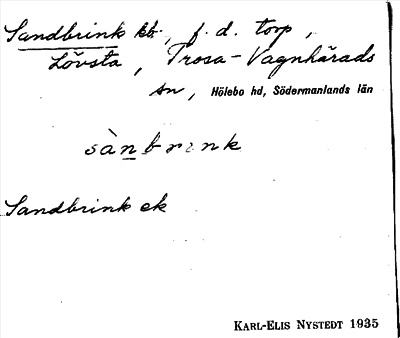 Sandbrink kb., f. d. torp,
Lövsta, Trosa-Vagnhärads
sn, Hölebo hd, Södermanlands län
sànbrink
Sandbrink ek
KARL-ELIS NYSTEDT 1935